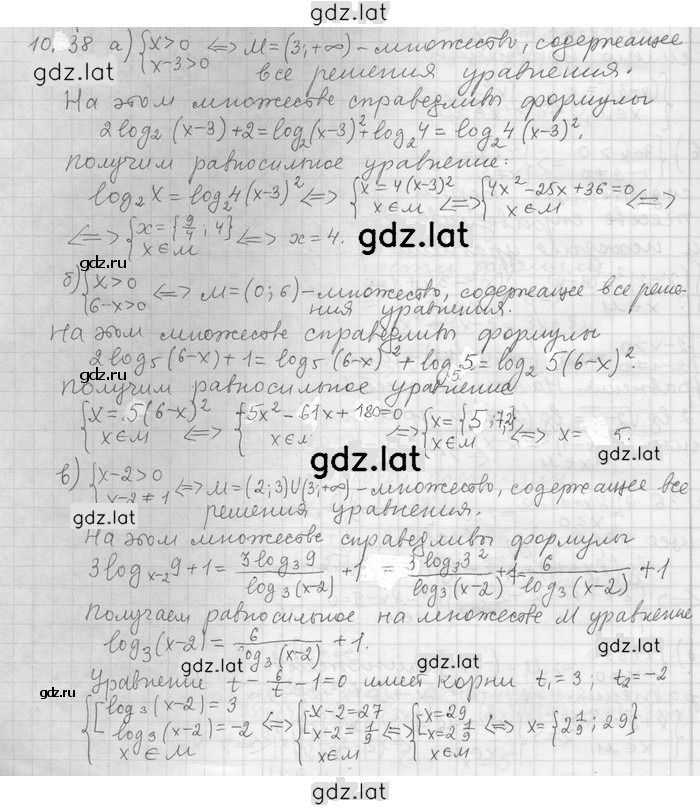 gdz.lat
10.38 а) {x>0 x-3>0 ⇔ M=(3;+∞) - множество, содержащее
gdz.lat
все решения уравнения.
На этом множестве справедливы формулы
2log₂(x-3)+2=log₂(x-3)²+log₂4=log₂4(x-3)².
Получим равносильное уравнение:
log₂x=log₂4(x-3)² ⇔ {x=4(x-3)² x∈M ⇔ {4x²-25x+36=0 x∈M ⇔
⇔ {x={9/4; 4} x∈M ⇔ x=4.
gdz.lat
gdz.ru
б) {x>0 6-x>0 ⇔ M=(0; 6) - множество, содержащее все реше-
ния уравнения.
gdz.lat
На этом множестве справедливы формулы
2log₅(6-x)+1=log₅(6-x)²+log₅5=log₂5(6-x)².
Получим равносильное уравнение
gdz.ru
{x=5(6-x)² x∈M ⇔ {5x²-61x+180=0 x∈M ⇔ {x={5; 7,2} x∈M ⇔ x=5.
gdz.lat
в) {x-2>0 x-2≠1 ⇔ M=(2; 3)∪(3;+∞) - множество, содержащее все
gdz.lat
решения уравнения.
gdz.lat
На этом множестве справедливы формулы
3logₓ₋₂9+1=3log₃9/log₃(x-2)+1=3log₃3²/log₃(x-2)+1=6/log₃(x-2)+1
Получаем равносильное на множестве M уравнение
log₃(x-2)=6/log₃(x-2)+1.
gdz.lat
gdz.lat
gdz.lat
Уравнение t-6/t-1=0 имеет корни t₁=3; t₂=-2
gdz.ru
{[log₃(x-2)=3 log₃(x-2)=-2 x∈M ⇔ {[x-2=27 x-2=1/9 x∈M ⇔ {[x=29 x=2 1/9 x∈M ⇔ x={2 1/9; 29}
gdz.lat